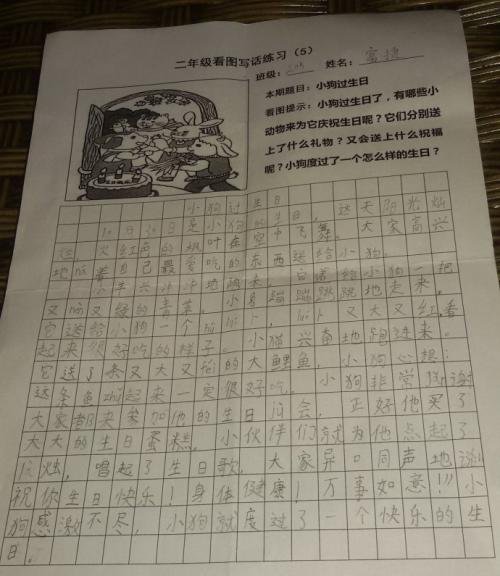 二年级看图写话练习（5）
班级： 姓名：
本期题目：小狗过生日
看图提示：小狗过生日了，有哪些小
动物来为它庆祝生日呢？它们分别送
上了什么礼物？又会送上什么祝福
呢？小狗度过了一个怎么样的生日？
小狗过生日
10月30日是小狗的生日，这天阳光灿
烂，火红色的枫叶在空中飞舞。大家高兴
地 着自己最爱吃的东西送给小狗。
小 兴冲冲地 来 给小狗一把
又 又绿的青菜。小 蹦蹦跳跳地走来，
它送给小狗一个 卜， 卜又大又红，看
起来很好吃的样子。小猫兴奋地跑进来。
它送了条又大又 的大鲤鱼，小狗心想：
这条鱼 起来一定很好吃。小狗非常感谢
大家都来参加他的生日 会，正好他买了
大大的生日蛋糕，小伙伴们就为他点起了
烛，唱起了生日歌，大家异口同声地说
祝你生日快乐！身体健康！万事如意!!!小
狗感激不尽，小狗就度过了一个快乐的生
日。